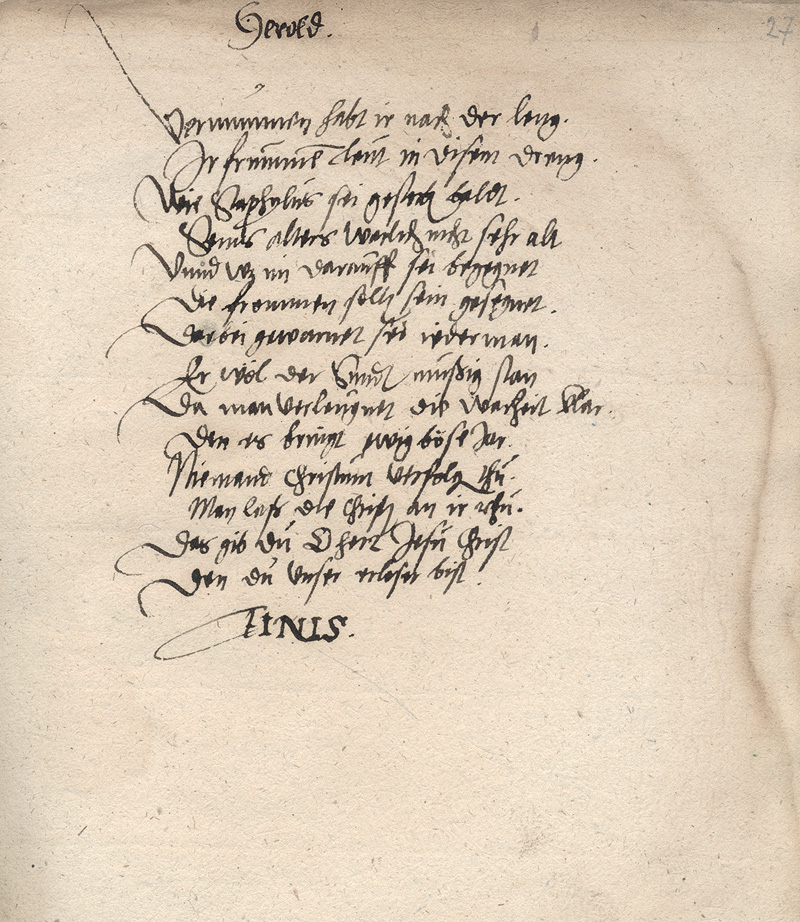 Herold.
27
Vernummen habt ir nach der leng.
Ir frummen leut in disem dreng.
Wie Staphylus sei gestorben baldt.
Seins alters warlich nicht sehr alt
Vnnd wz im darauff sei begegnet
Die frommen solln sein gesegnet.
Darbei gewarnet sei iederman.
Er wol der Sundt mussig stan
Da man verleugnet die warheit klar.
Den es bringt ewig böse Jar.
Niemand Christum verfolgen thu.
Man lass die Christen an ir rhu.
Das gib du O herr Jesu Christ
Den du vnser erloser bist.
FINIS.